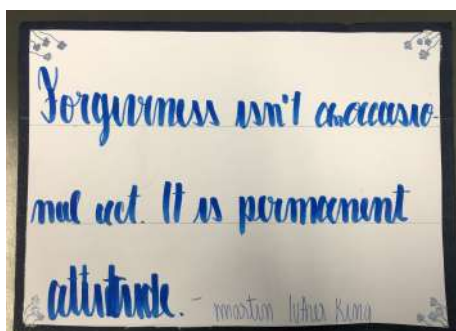 Forgiveness isn't an occasio-
nal act. It is permanent
attitude. - martin luther King